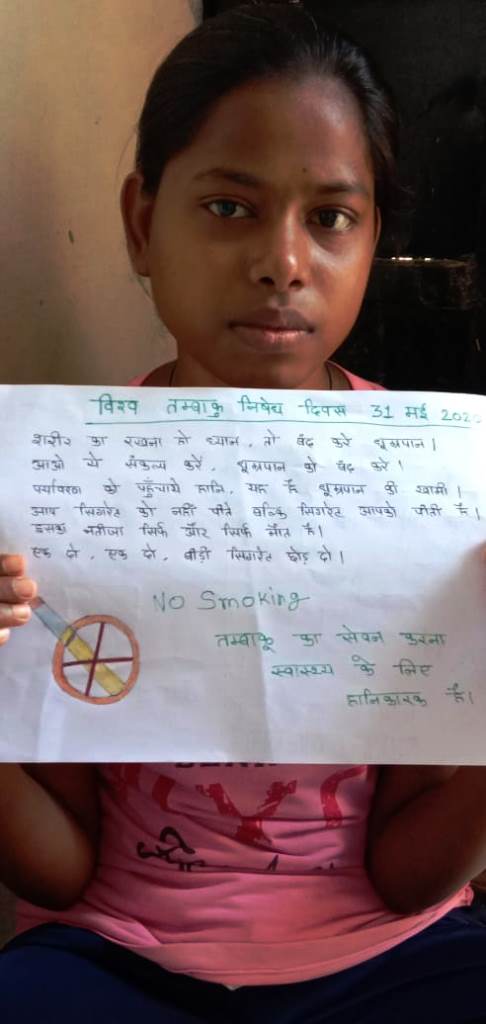 विश्व तम्बाकु निषेध दिवस 31 मई 2020
शरीर का रखना हो ध्यान, तो बंद करे धूम्रपान।
आओ ये संकल्प करें, धूम्रपान को बंद करे।
पर्यावरण को पहुँचाये हानि, यह है धूम्रपान की खामी।
आप सिगरेट को नहीं पीते बल्कि सिगरेट आपको पीती है।
इसका नतीजा सिर्फ और सिर्फ मौत है।
एक दो, एक दो, बीड़ी सिगरेट छोड़ दो।
NO Smoking
तम्बाकू का सेवन करना
स्वास्थ्य के लिए
हानिकारक है।